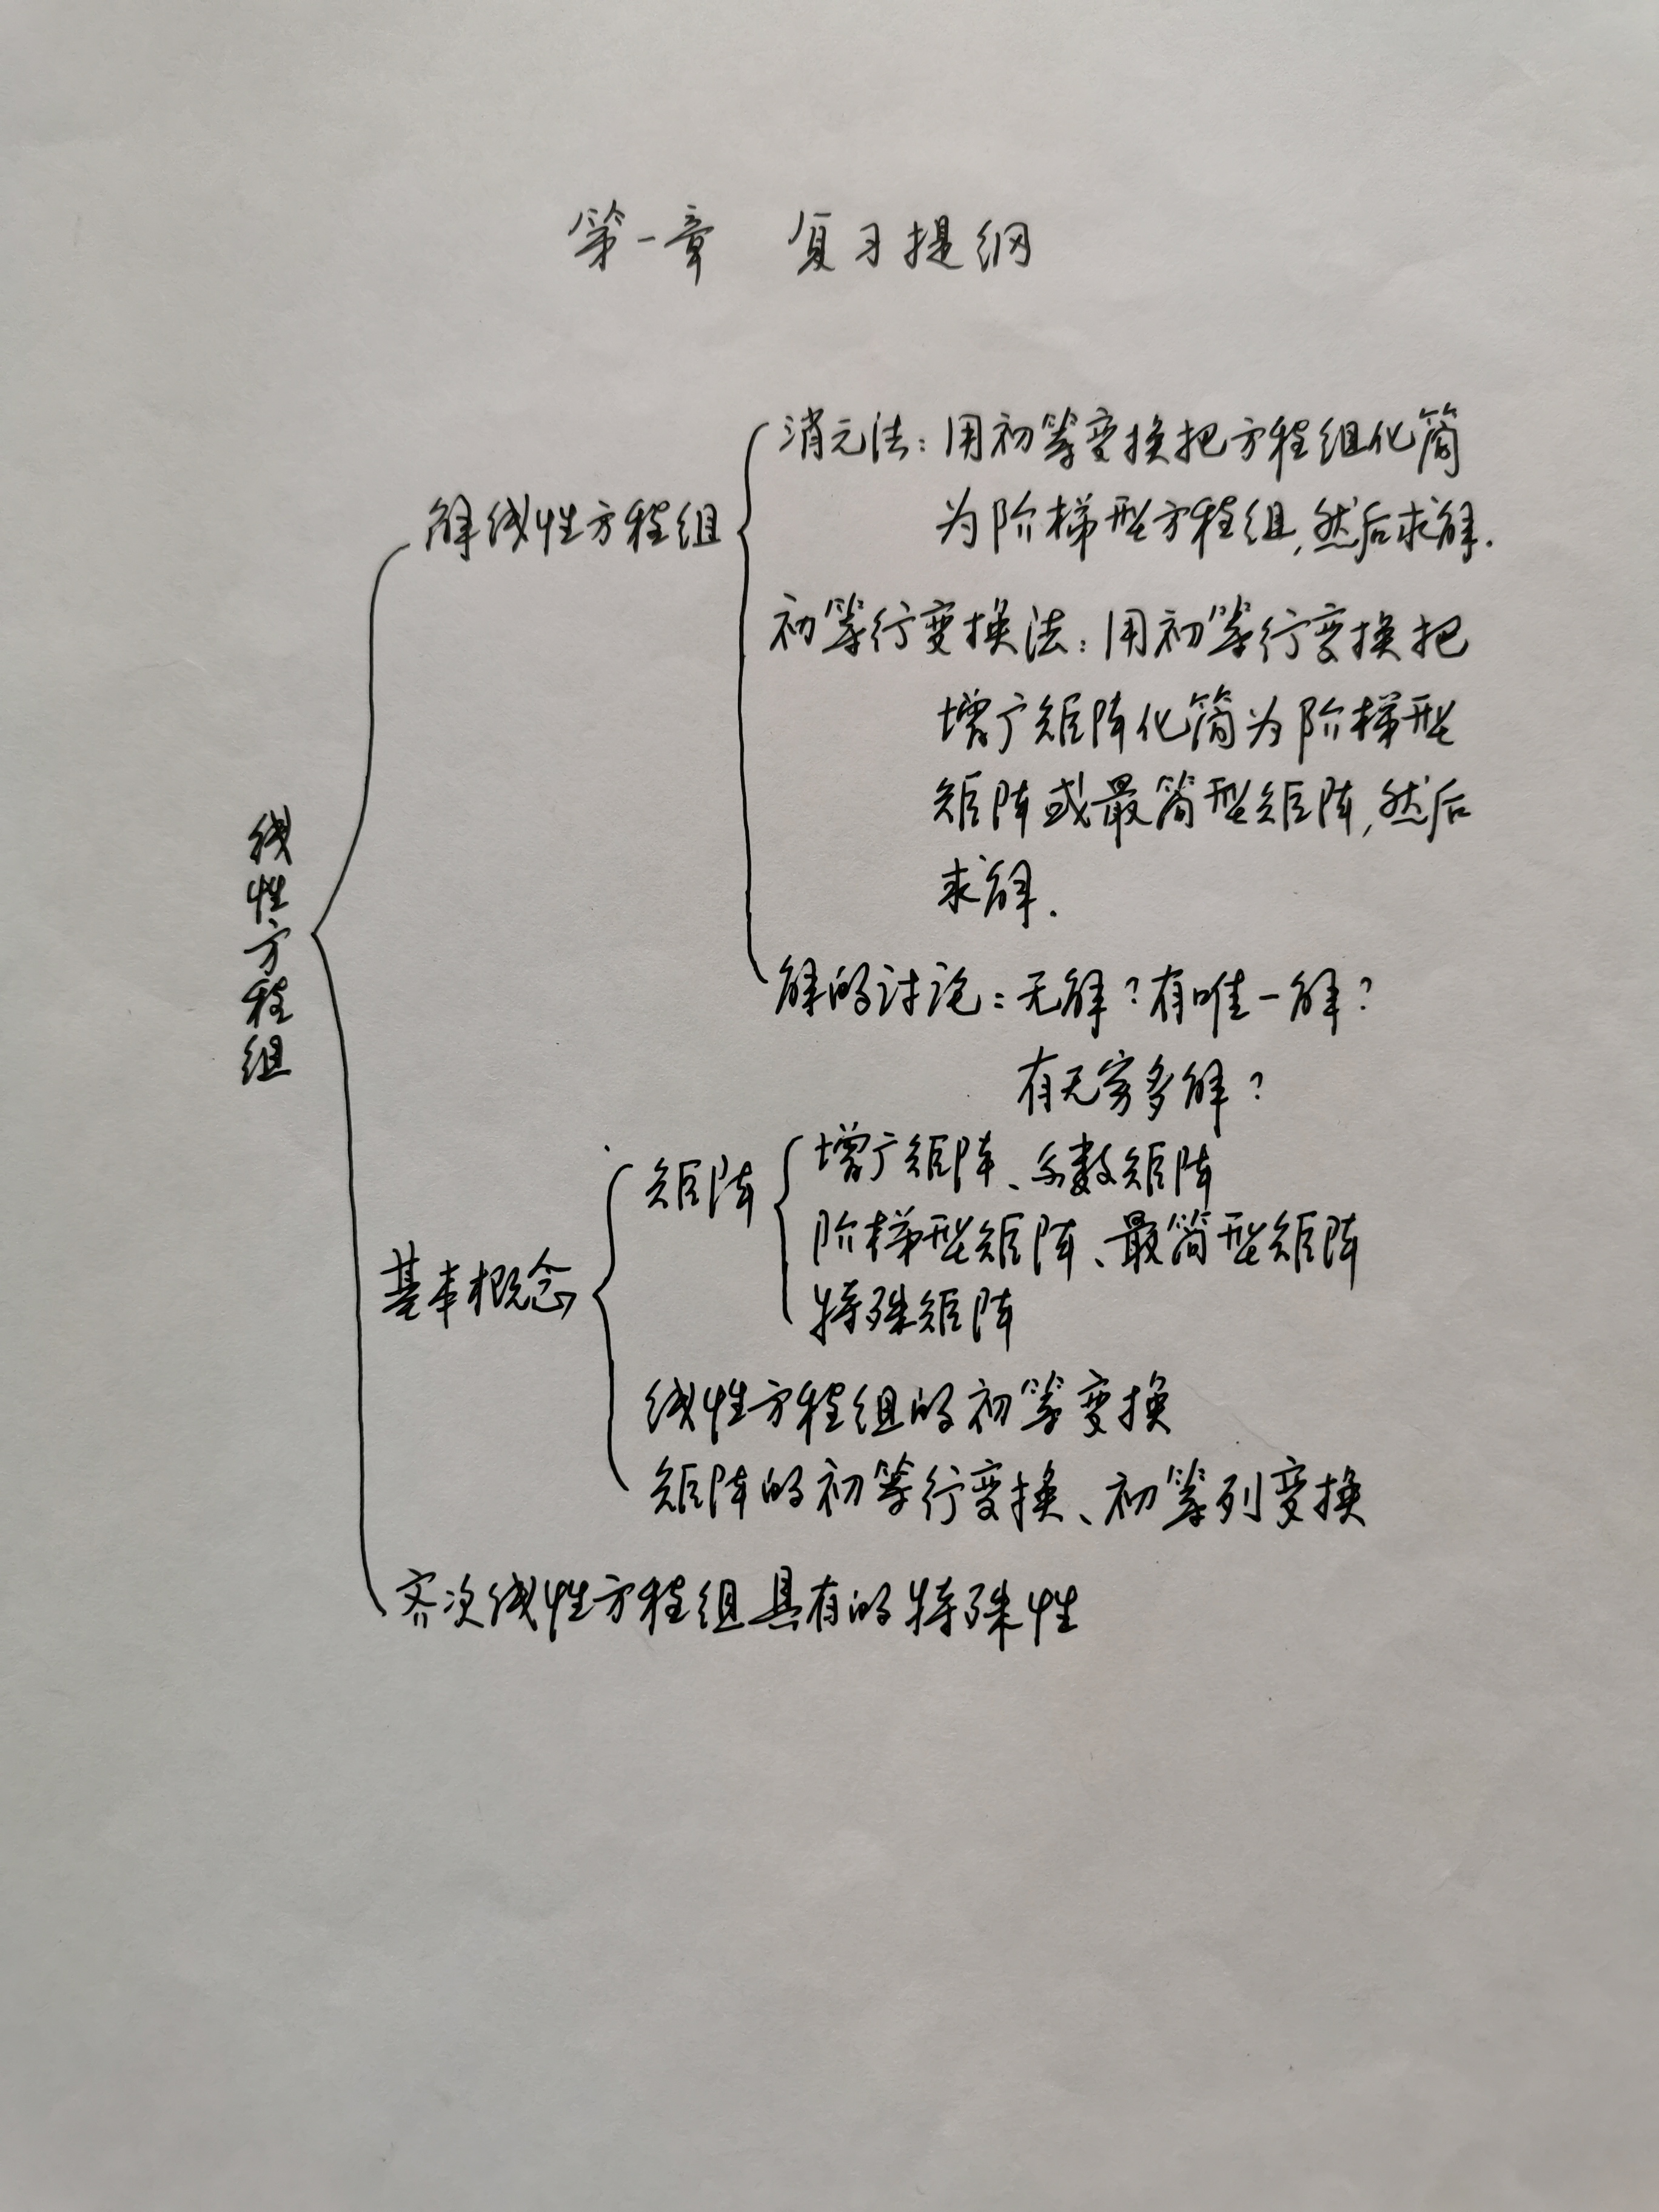 第一章 复习提纲
线性方程组
解线性方程组
消元法：用初等变换把方程组化简
为阶梯型方程组,然后求解.
初等行变换法：用初等行变换把
增广矩阵化简为阶梯型
矩阵或最简型矩阵,然后
求解.
解的讨论：无解？有唯一解？
有无穷多解？
基本概念
矩阵
增广矩阵、系数矩阵
阶梯型矩阵、最简型矩阵
特殊矩阵
线性方程组的初等变换
矩阵的初等行变换、初等列变换
齐次线性方程组具有的特殊性